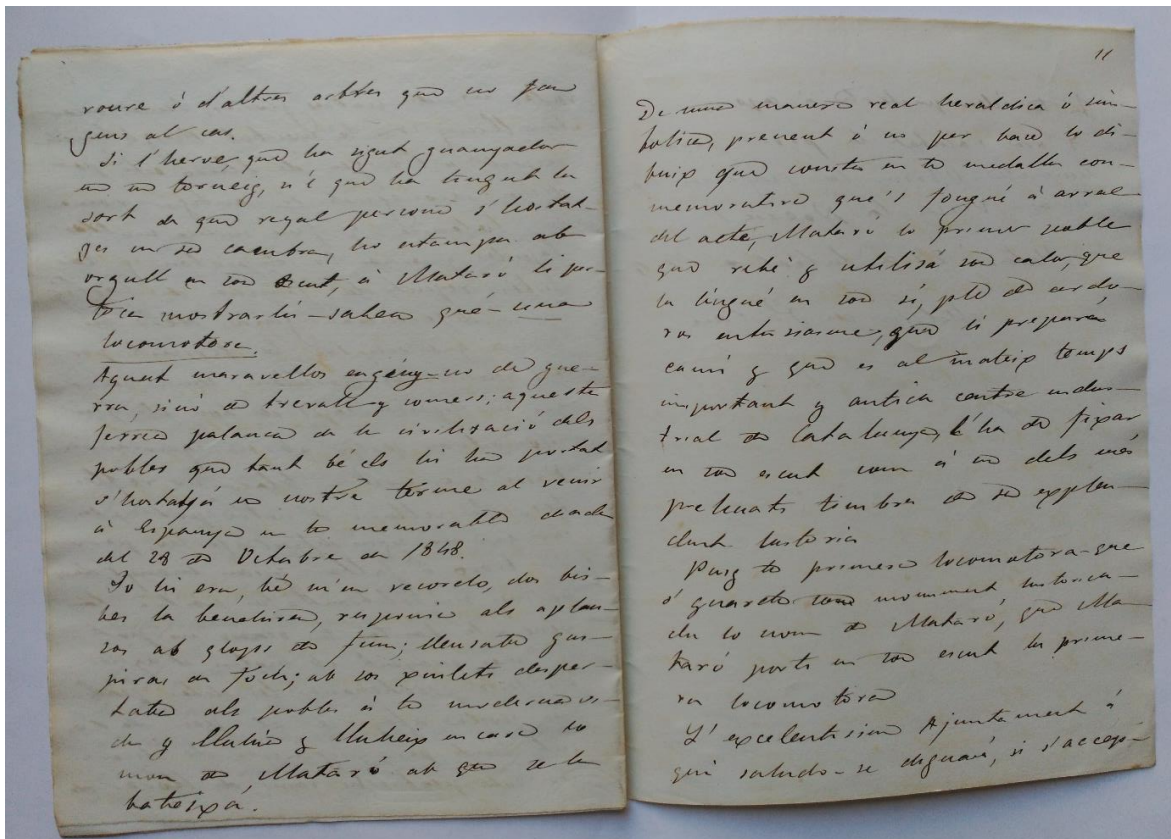 roure ó d'altres arbres que no fan
gens al cas.
Si l'hereu, que ha sigut guanyador
en un torneig, ó 'l que ha tingut la
sort de que regal persona s'hostat-
jes en sa cambra, ho estampa ab
orgull en son escut, á Mataró li per-
toca mostrarhi - sabeu qué - una
locomotora.
Aquest maravellos engény - no de gue-
rra, sinó de trevall y comers; aquesta
férrea palanca de la civilisació dels
pobles que tant bé els hi ha portat
s'hostatjá en nostre terme al venir
á Espanya en la memorable diada
del 28 de Octubre de 1848.
Jo hi era, bé m'en recordo, dos bis-
bes la benehiren, responia als aplau-
sos ab glops de fum; llensaba gus-
piras de foch; ab sos xiulets desper-
taba als pobles á la moderna vi-
da y lluhia y lluheix encara lo
nom de Mataró ab que se la
batejxá.
11
De una manera real heráldica ó sim-
bólica, prenent ó no per base lo di-
buix que consta en la medalla con-
memorativa que's fongué á arrel
del acte, Mataró lo primer poble
que rebé y utilisá son calor, que
la tingué en son sí, ple de ardo-
ros entusiasme, que li prepará
camí y que es al mateix temps
important y antich centre indus-
trial de Catalunya, l'ha de fixar
en son escut com á un dels més
preuhats timbres de sa explen-
dent historia
Puig la primera locomotora - que
s' guarda com monument historica-
du lo nom de Mataró, que Ma-
taró porti en son escut la prime-
ra locomotora
L' excelentisim Ajuntament á
qui saludo - se dignará, si s'accep-